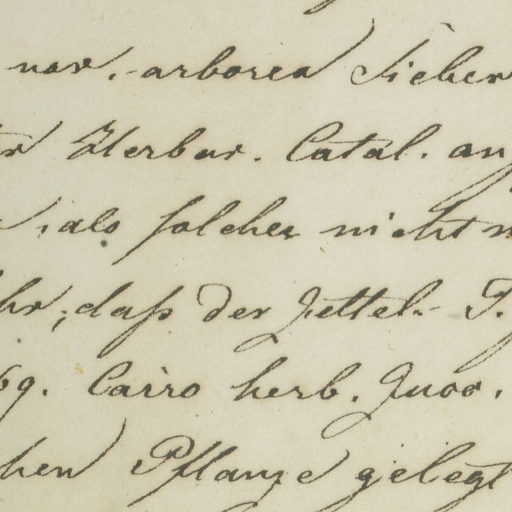 nov. arborea Sieber
Herbar. Catal. an
, als solches nicht
, daß der Zettel. P.
69. Cairo herb.
hen Pflanze gelegt